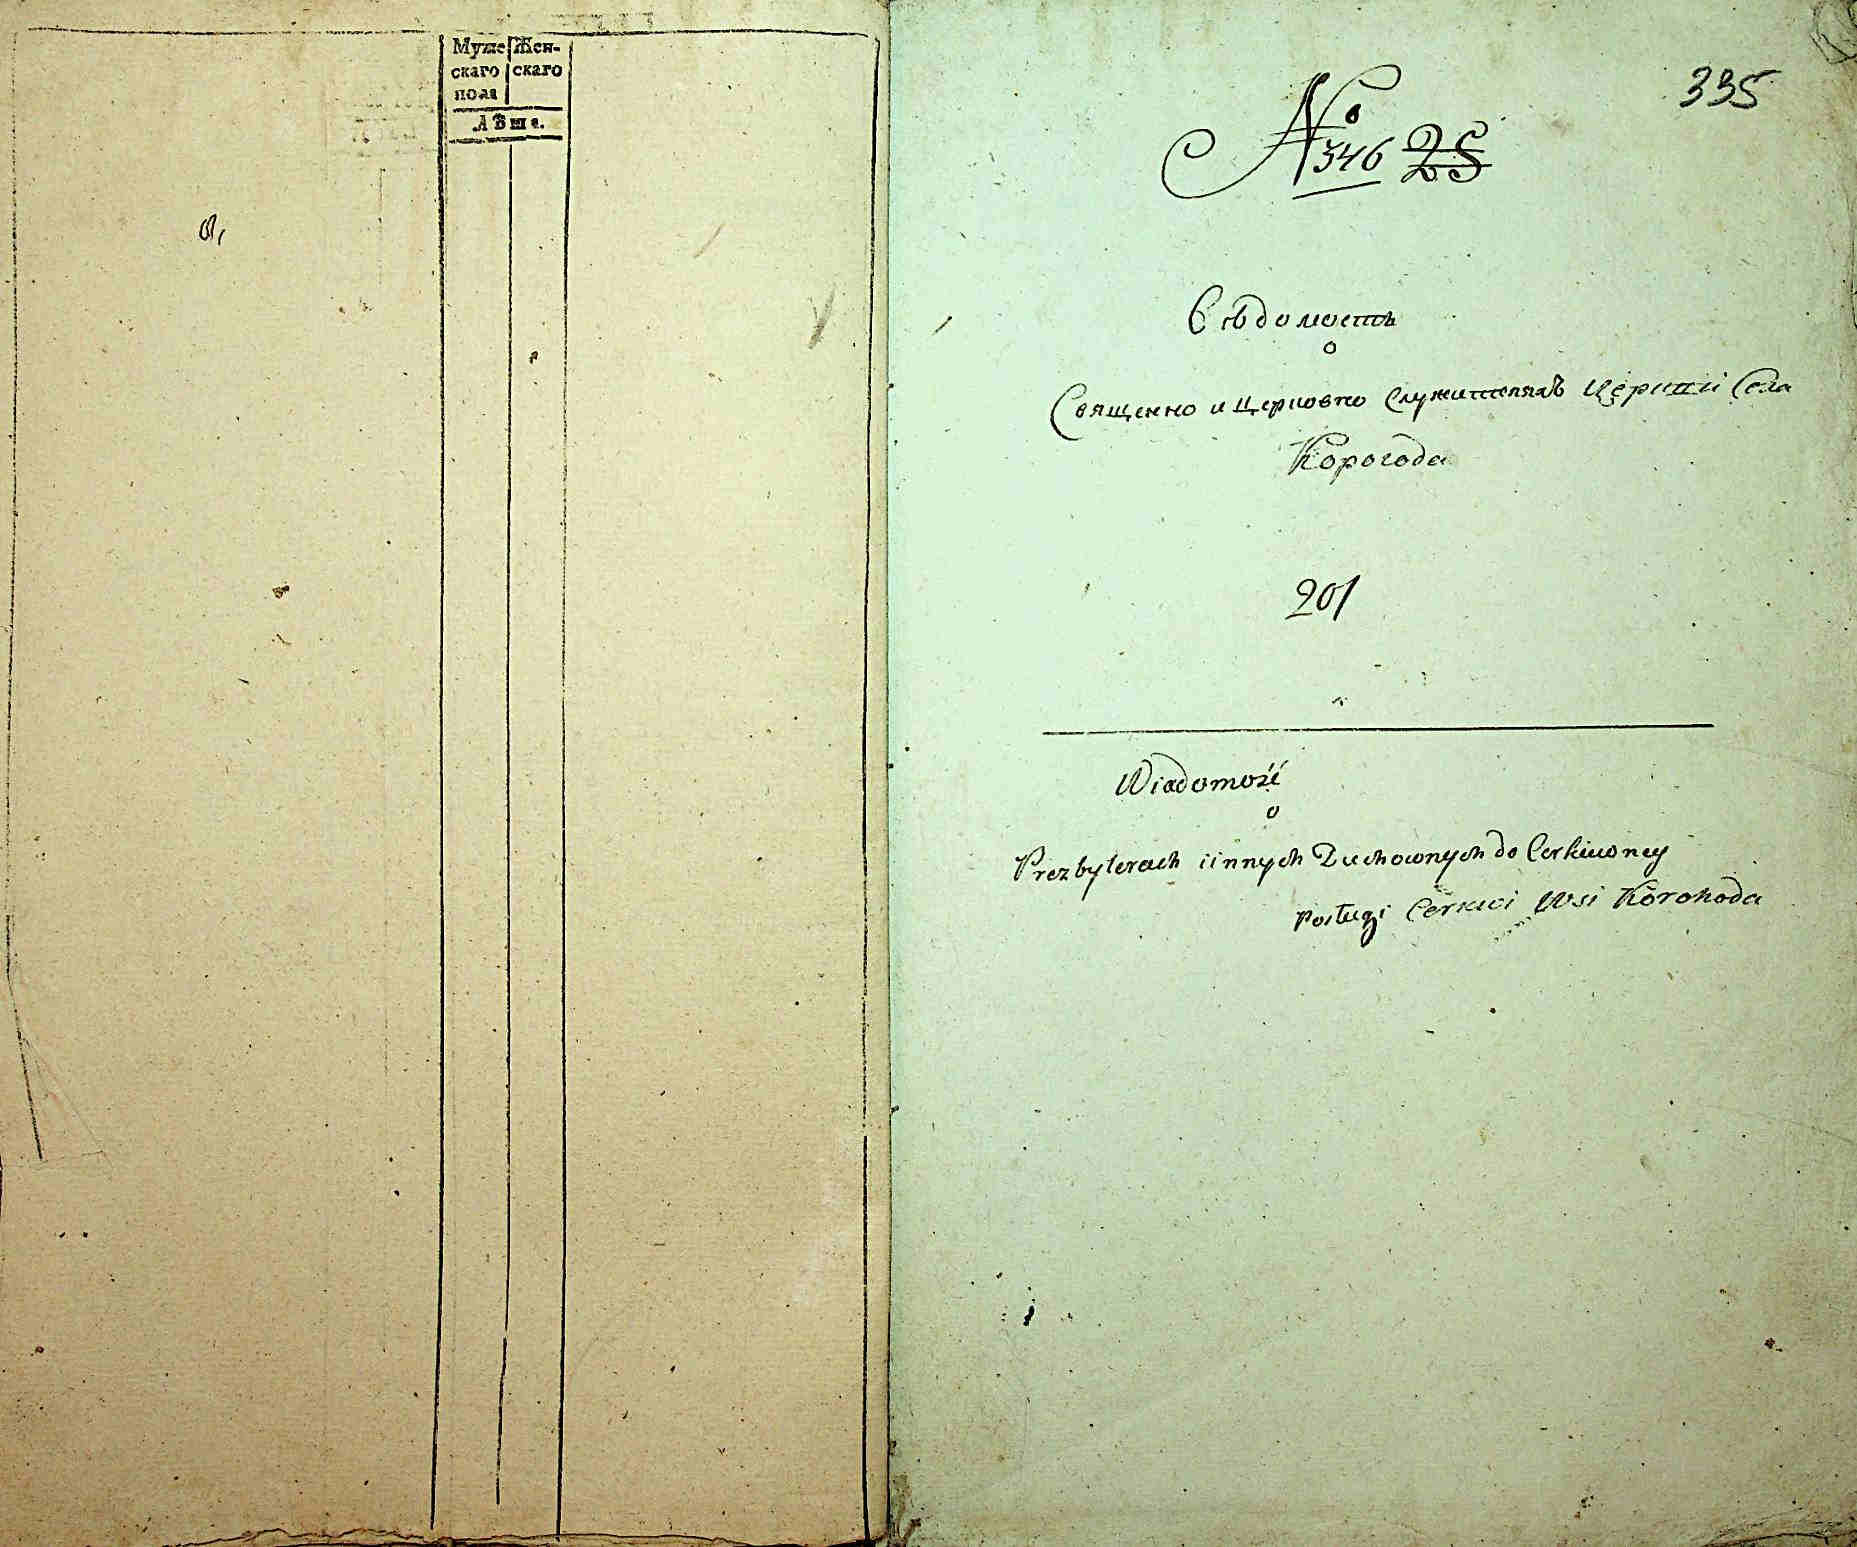 Муже Жен-
скаго скаго
пола
Лѣта.
335
№ 346 25
Вѣдомость
о
Священно и Церковно Служителяхъ Церкви Села
Корогода
201
Wiadomość
o
Prezbyterach i innych Duchownych do Cerkiewney
Posługi Cerkwi Wsi Korohoda